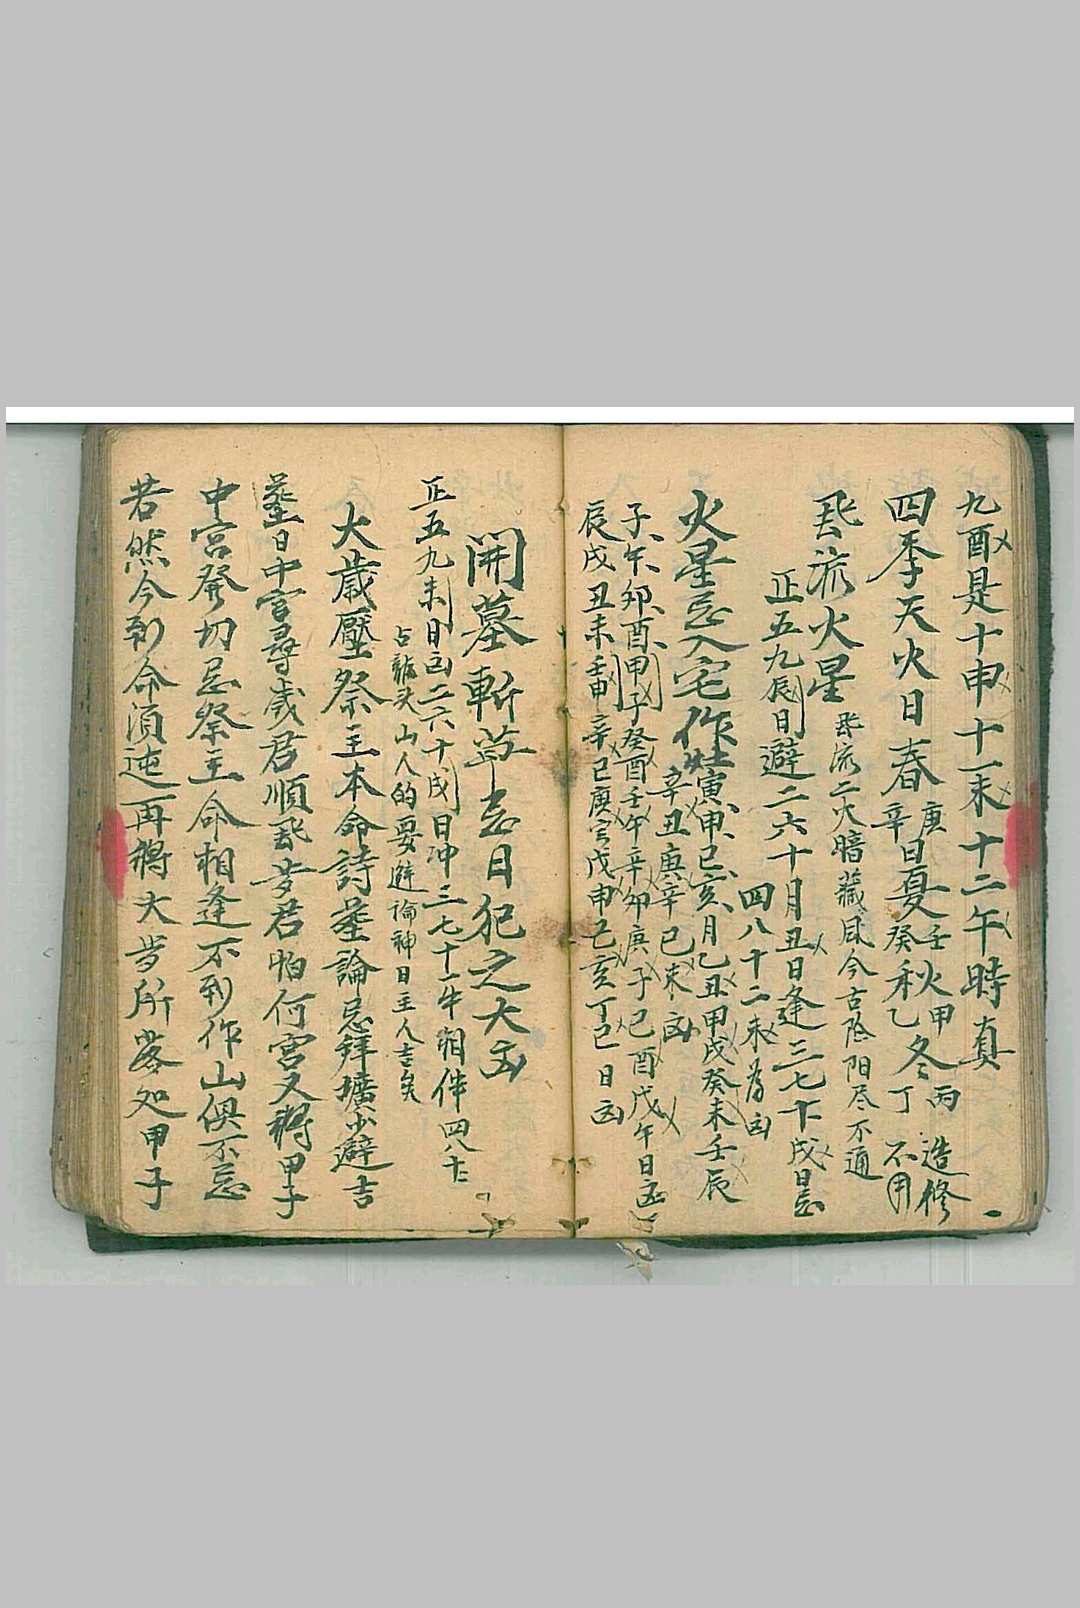 九酉是十申十一未十二午時真
四季天火日春庚辛日夏壬癸秋甲乙冬丙丁造修不用
飛流火星 飛流二火暗藏風今古陰陽尽不通
正五九辰日避二六十月丑日逢三七十戌日忌
四八十二未為凶
火星忌入宅作灶寅申巳亥月乙丑甲戌癸未壬辰
辛丑庚辛巳未凶
子午卯酉甲子癸酉壬午辛卯庚子己酉戊午日凶
辰戌丑未壬申辛巳庚寅戊申己亥丁巳日凶
開墓斬草忌日犯之大凶
正五九未日凶二六十戌日冲三七十一牛相伴四八十二
占龍头山人的要避論神日主人吉矣
大歲壓祭主本命詩葬論忌拜壙少避吉
葬日中宮尋歲君順飛歲君怕何宮又将甲子
中宮發切忌祭主命相逢不到作山俱不忌
若然今到命須迍再将大歲所落処甲子